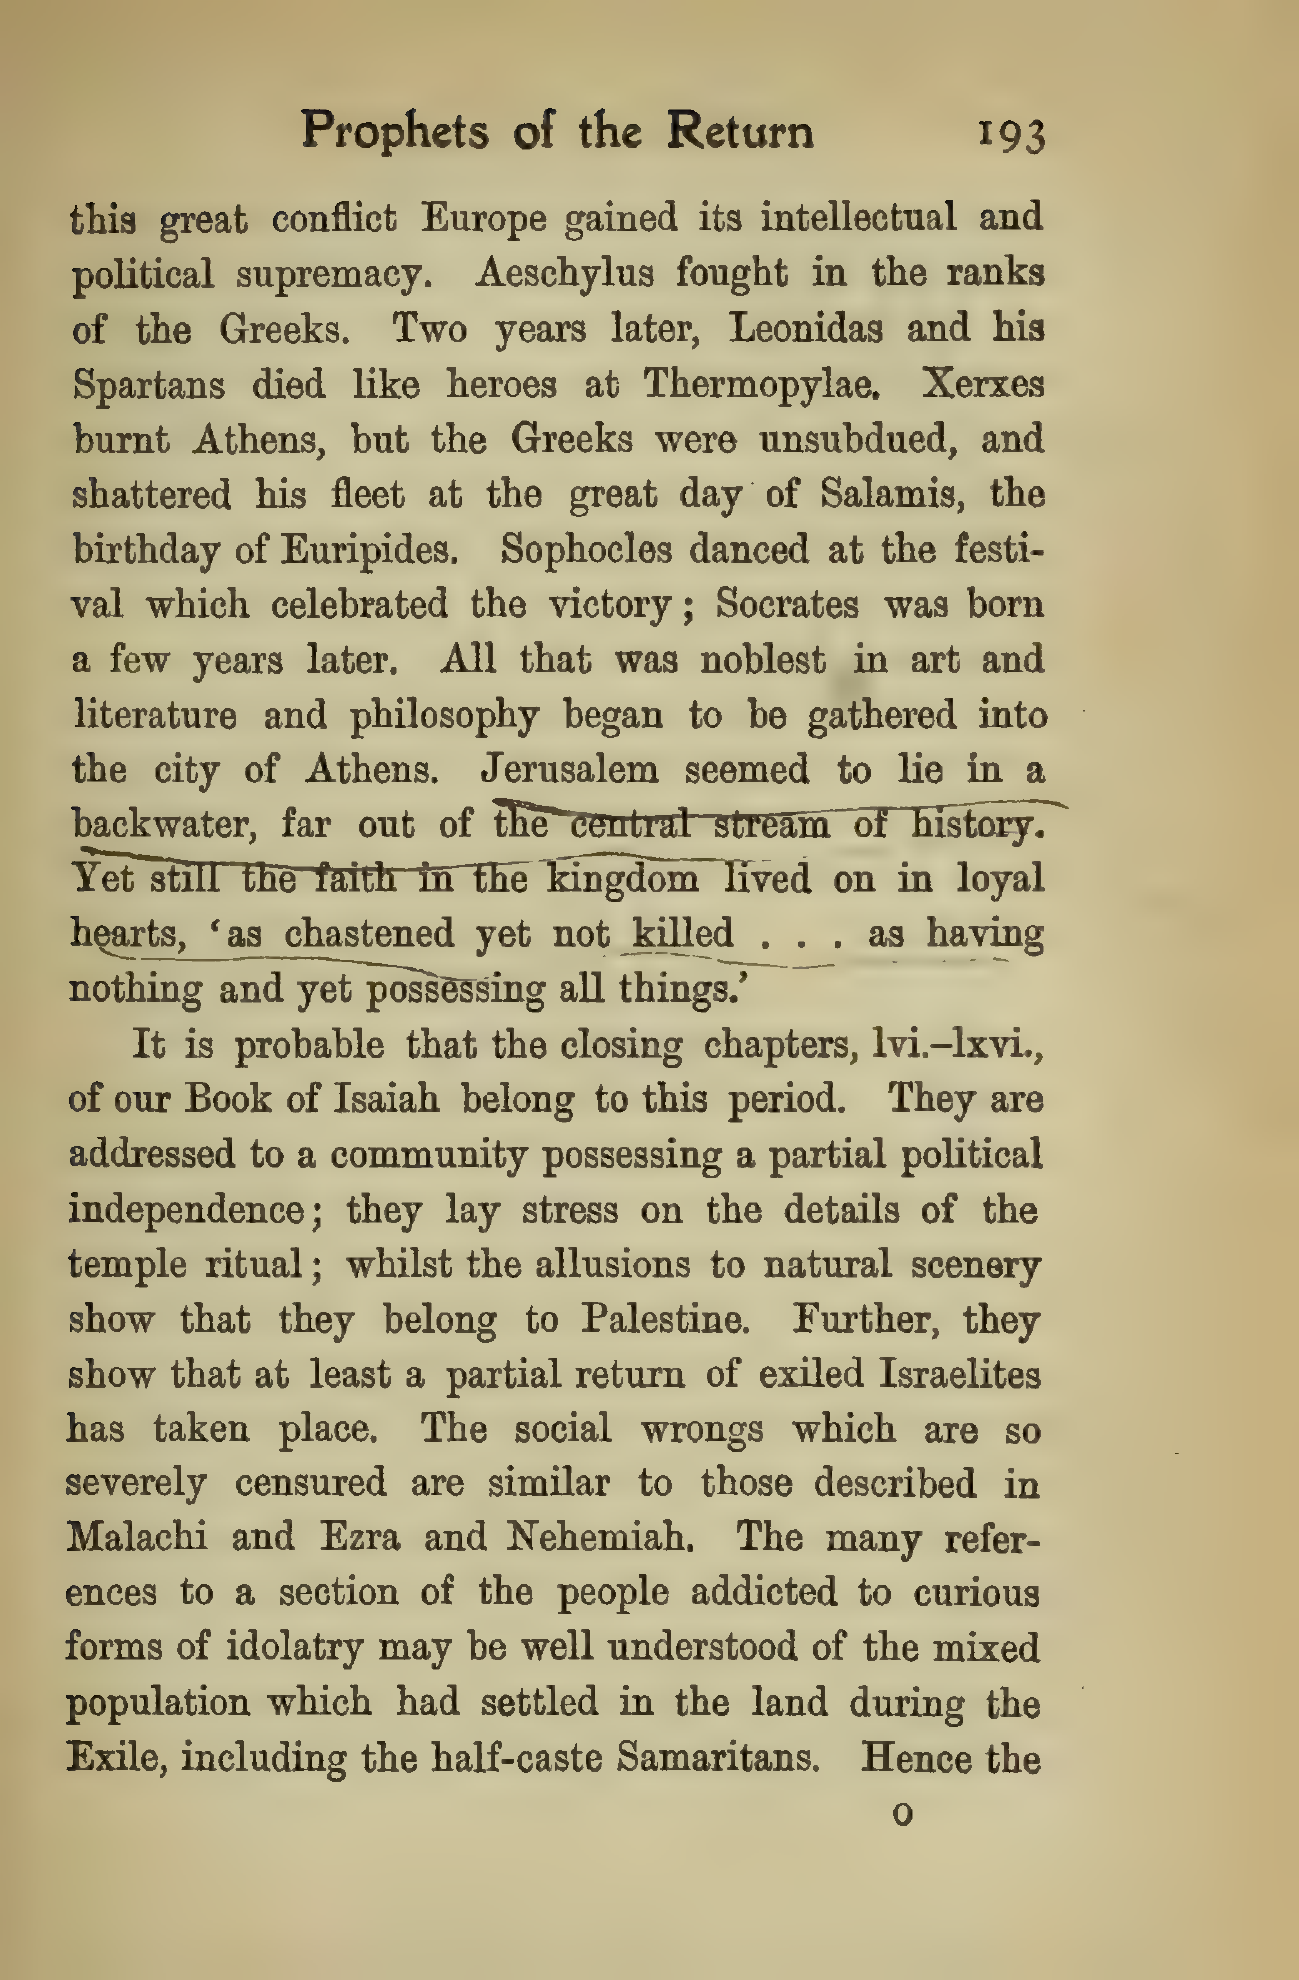 Prophets of the Return 193
this great conflict Europe gained its intellectual and
political supremacy. Aeschylus fought in the ranks
of the Greeks. Two years later, Leonidas and his
Spartans died like heroes at Thermopylae. Xerxes
burnt Athens, but the Greeks were unsubdued, and
shattered his fleet at the great day of Salamis, the
birthday of Euripides. Sophocles danced at the festi-
val which celebrated the victory; Socrates was born
a few years later. All that was noblest in art and
literature and philosophy began to be gathered into
the city of Athens. Jerusalem seemed to lie in a
backwater, far out of the central stream of history.
Yet still the faith in the kingdom lived on in loyal
hearts, ‘as chastened yet not killed . . . as having
nothing and yet possessing all things.’
It is probable that the closing chapters, lvi.–lxvi.,
of our Book of Isaiah belong to this period. They are
addressed to a community possessing a partial political
independence; they lay stress on the details of the
temple ritual; whilst the allusions to natural scenery
show that they belong to Palestine. Further, they
show that at least a partial return of exiled Israelites
has taken place. The social wrongs which are so
severely censured are similar to those described in
Malachi and Ezra and Nehemiah. The many refer-
ences to a section of the people addicted to curious
forms of idolatry may be well understood of the mixed
population which had settled in the land during the
Exile, including the half-caste Samaritans. Hence the
O